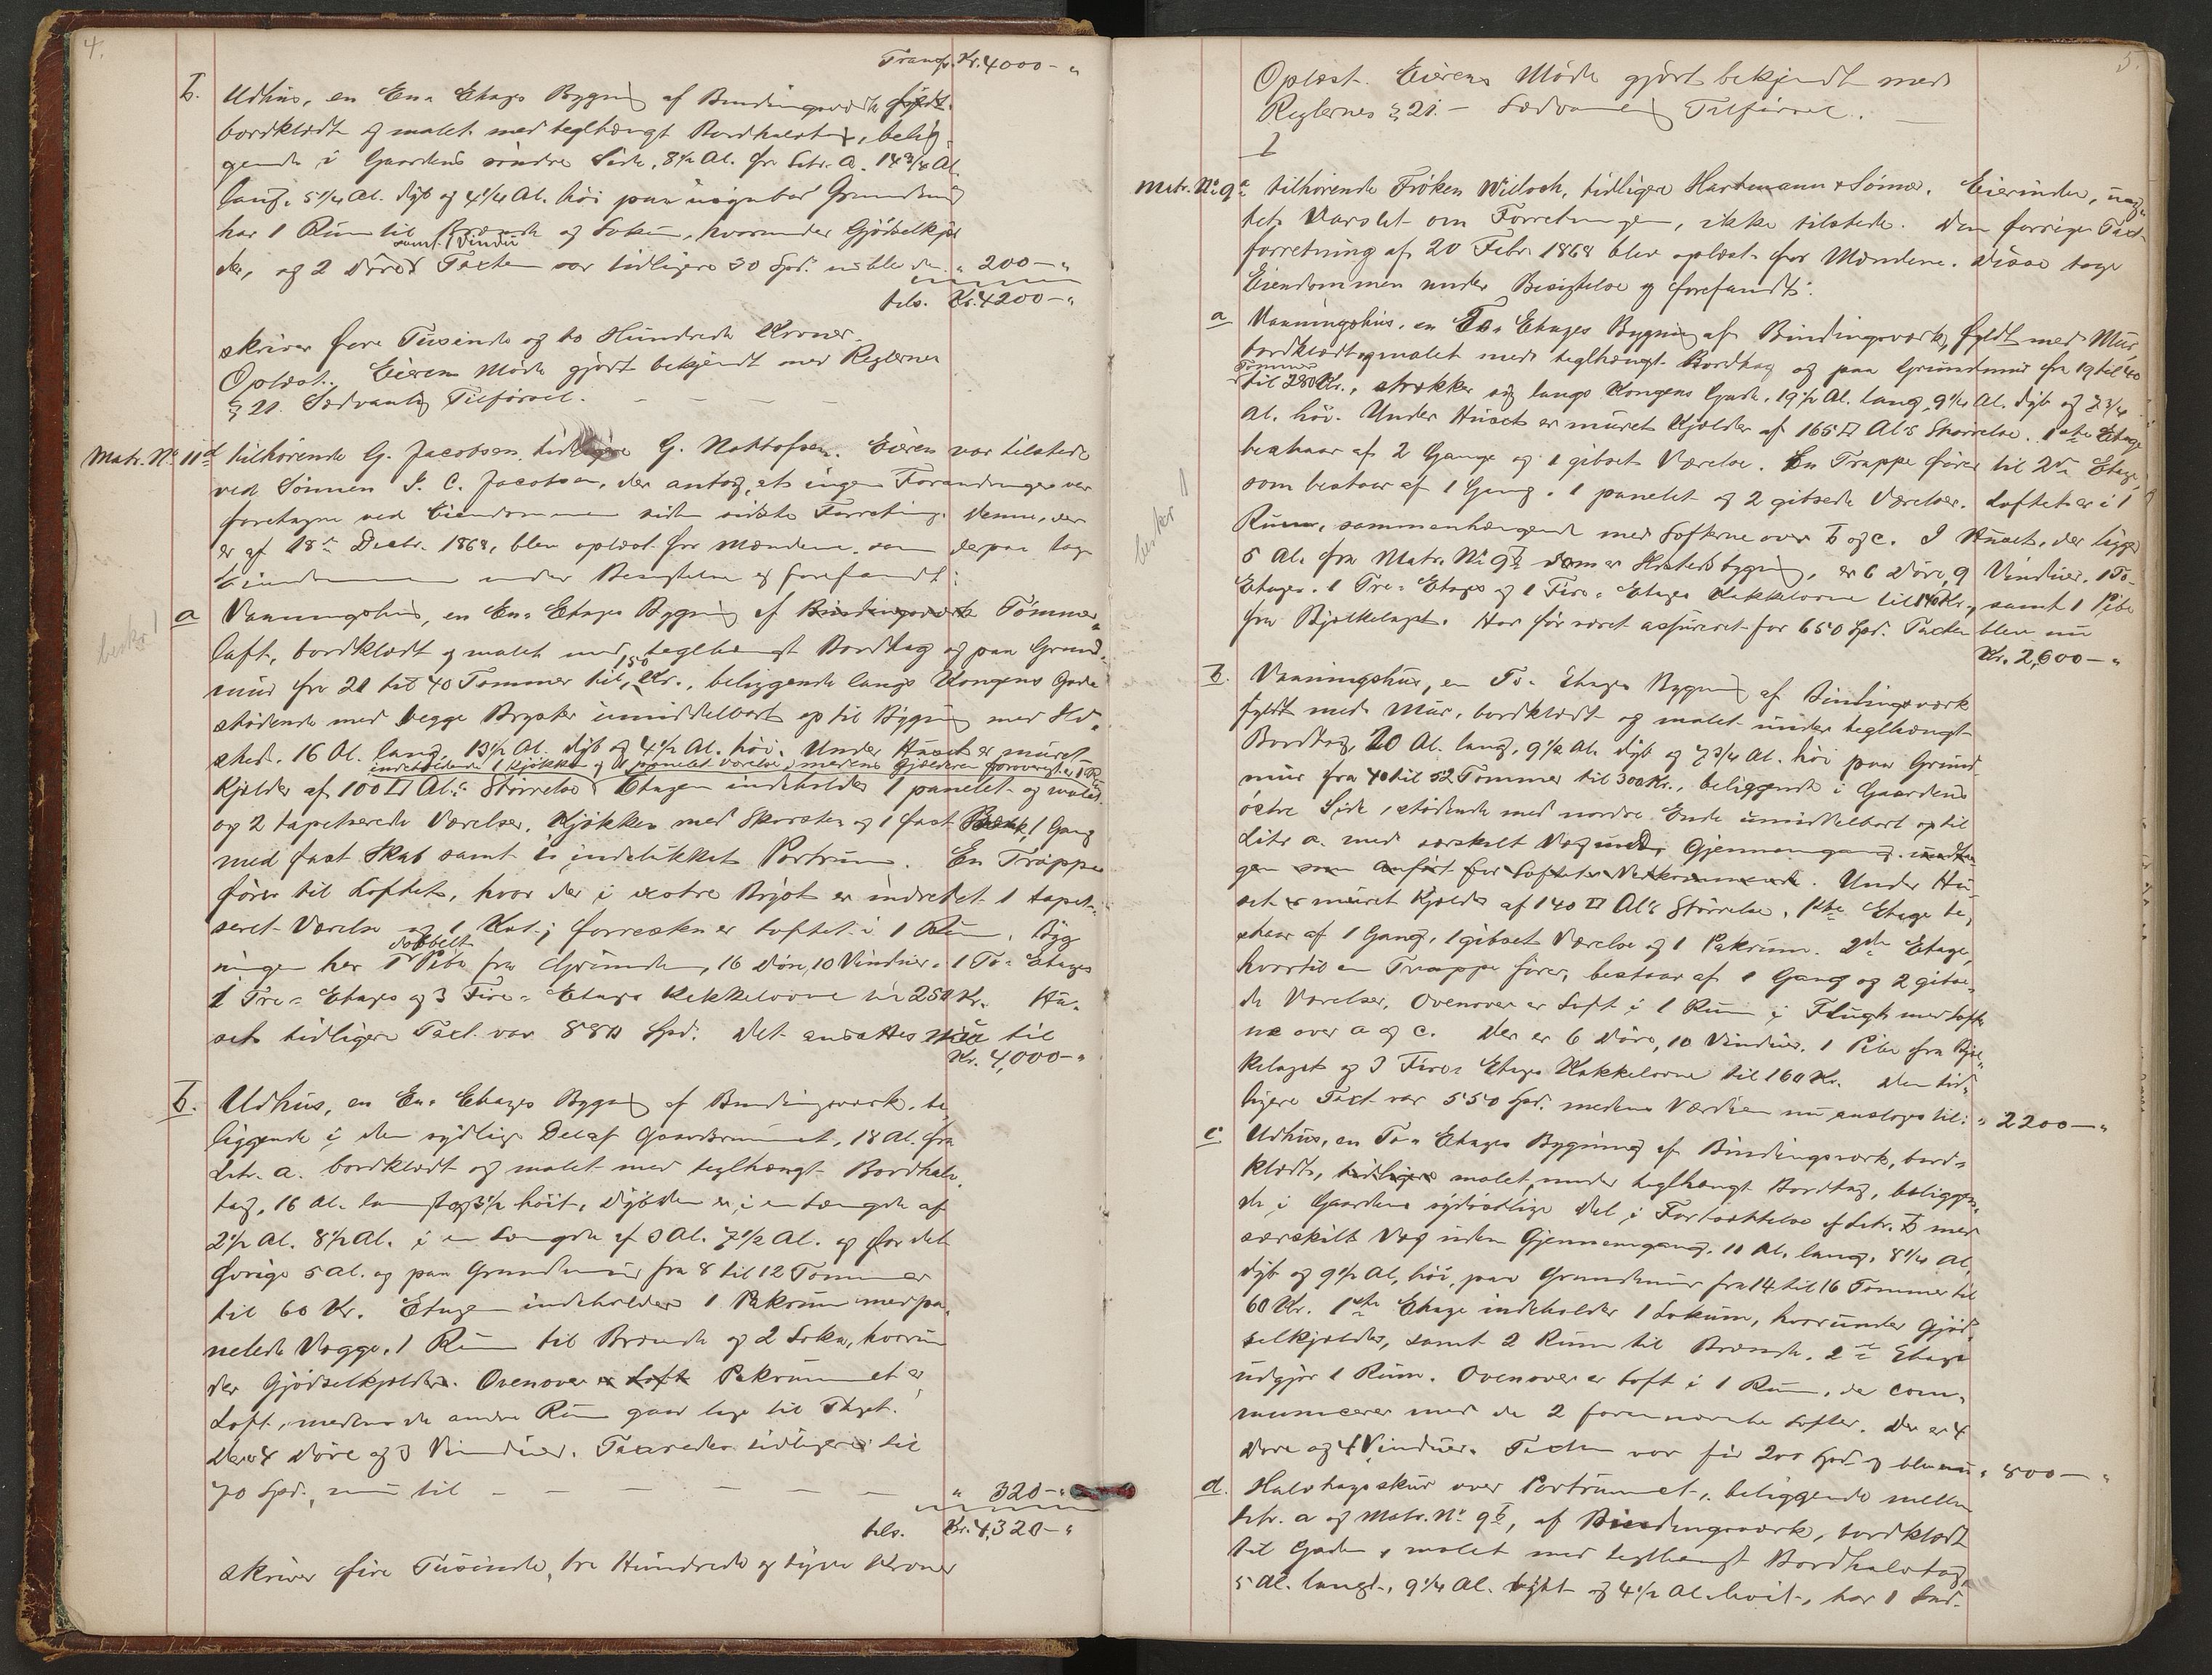 4.
Transp. Kr. 4000-"
b. Udhus, en En-Etages Bygning af Bindingsværk fyldt.
bordklædt og malet med teglhængt Bordhalvtag, belig
gende i Gaardens søndre Side, 8½ Al. fra Litr. a. 14¾ Al.
lang, 5¼ Al. dyb og 4¼ Al. høi paa usynbar Grundmur
har 1 Rum til Brænde og Lokum, hvorunder Gjødselkjæl
samt 1 Vindu
der, og 2 Døre. Taxten var tidligere 30 Spd. nu blev den " 200-"
tils. Kr. 4200-"
skriver fire Tusinde og to Hundrede Kroner.
Oplæst. Eieren Møde gjort bekjendt med Reglernes
§ 21. Sædvanlig Tilførsel. - - -
Matr. No 11d tilhørende G. Jacobsen, tidligere G. Nottofsen. Eieren var tilstede
ved Sønnen I. C. Jacobsen, der antog, at ingen Forandringer var
foretagne ved Eiendommen siden sidste Forretning. Denne, der
er af 18de Decbr. 1868, blev oplæst for Mændene, som derpaa tog
Eiendommen under Besigtelse og forefandt:
a Vaaningshus, en En-Etages Bygning af Bindingsværk Tømmer-
laft, bordklædt og malet med teglhængt Bordtag og paa Grund-
150
mur fra 21 til 40 Tommer til Kr., beliggende langs Kongens Gade
stødende med begge Bryster umiddelbart op til Bygning med Ild-
sted. 16 Al. lang, 13½ Al. dyb og 4½ Al. høi. Under Huset er muret
indeholdende 1 Kjøkken og 1 panelet Værelse, medens Kjælderen forøvrigt er 1 Rum
Kjelder af 100 □ Al.s Størrelse. Etagen indeholder 1 panelet og malet
og 2 tapetserede Værelser, Kjøkken med Skorsten og 1 fast Bænk, 1 Gang
med fast Skab samt et indelukket Portrum. En Trappe
fører til Loftet, hvor der i vestre Bryst er indredet 1 tapet-
seret Værelse og 1 Kot; forresten er Loftet i 1 Rum. Byg
dobbelt
ningen har 1 Pibe fra Grunden, 16 Døre, 10 Vinduer, 1 To-Etages
1 Tre-Etages og 3 Fire-Etages Kakkelovne til 250 Kr. Hu-
sets tidligere Taxt var 880 Spd. Det ansattes nu til
Kr. 4,000-"
b. Udhus, en En-Etages Bygning af Bindingsværk, be
liggende i den sydlige Del af Gaardsrummet, 18 Al. fra
Litr. a. bordklædt og malet med teglhængt Bordhalv-
tag, 16 Al. langt og 3½ høit, Dybden er i en Længde af
2½ Al. 8½ Al. i en Længde af 3 Al. 7½ Al. og for det
øvrige 5 Al. og paa Grundmur fra 8 til 12 Tommer
til 60 Kr. Etagen indeholder 1 Pakrum med pa-
nelede Vægge, 1 Rum til Brænde og 2 Loka, hvorun
der Gjødselkjelder. Ovenover er Loft Pakrummet er
Loft, medens de andre Rum gaar lige til Taget.
Der er 4 Døre og 3 Vinduer. Taxeredes tidligere til
70 Spd., nu til - - - - - - " 320-"
tils. Kr. 4,320-"
skriver fire Tusinde, tre Hundrede og tyve Kroner
beskr!
5.
Oplæst. Eierens Møde gjort bekjendt med
Reglernes § 21. - Sædvanlig Tilførsel. -
Matr. No 9a tilhørende Frøken Willoch, tidligere Hartmann & Sømæ. Eierinden, uag-
tet Varslet om Forretningen, ikke tilstede. Den forrige Taxt
forretning af 20 Febr. 1868 blev oplæst for Mændene. Disse tage
Eiendommen under Besigtelse og forefandt:
a Vaaningshus, en To-Etages Bygning af Bindingsværk, fyldt med Mur,
bordklædt og malet med teglhængt Bordtag og paa Grundmur fra 19 til 40
Tommer
til 280 Kr., strækker sig langs Kongens Gade, 19½ Al. lang, 9¼ Al. dyb og 7¾
Al. høi. Under Huset er muret Kjælder af 165 □ Al.s Størrelse. 1ste Etage
bestaar af 2 Gange og 1 gibset Værelse. En Trappe fører til 2den Etage,
som bestaar af 1 Gang, 1 panelet og 2 gibsede Værelser. Loftet er i 1
Rum, sammenhængende med Lofterne over b og c. I Huset, der ligger
5 Al. fra Matr. No 9b som er Ildstedsbygning, er 6 Døre, 9 Vinduer. 1 To-
Etages, 1 Tre-Etages og 1 Fire-Etages Kakkelovne til 140 Kr., samt 1 Pibe
fra Bjælkelaget. Har før været assureret for 650 Spd. Taxten blev nu
Kr. 2,600-"
b. Vaaningshus, en To-Etages Bygning af Bindingsværk
fyldt med Mur, bordklædt og malet under teglhængt
Bordtag, 20 Al. lang, 9½ Al. dyb og 7¾ Al. høi paa Grund-
mur fra 40 til 52 Tommer til 300 Kr., beliggende i Gaardens
østre Side, stødende med nordre Ende umiddelbart op til
Litr. a. med særskilt Væg uden Gjennemgang, undta
gen som anført for Lofternes Vedkommende. Under Hu-
set er muret Kjelder af 140 □ Al.s Størrelse. 1ste Etage be-
staar af 1 Gang, 1 gibset Værelse og 1 Pakrum. 2den Etage,
hvortil en Trappe fører, bestaar af 1 Gang og 2 gibse-
de Værelser. Ovenover er Loft i 1 Rum i Flugt med Lofter
ne over a og c. Der er 6 Døre, 10 Vinduer, 1 Pibe fra Bjæl-
kelaget og 3 Fire-Etages Kakkelovne til 160 Kr. Den tid-
ligere Taxt var 550 Spd. medens Værdien nu ansloges til: " 2200-"
c. Udhus, en To-Etages Bygning af Bindingsværk, bord-
klædt, tidligere malet, under teglhængt Bordtag, beliggen-
de i Gaardens sydøstlige Del i Fortsættelse af Litr. b med
særskilt Væg uden Gjennemgang, 11 Al. lang, 8¼ Al.
dyb og 9½ Al. høi, paa Grundmur fra 14 til 16 Tommer til
60 Kr. 1ste Etage indeholder 1 Lokum, hvorunder Gjød-
selkjælder, samt 2 Rum til Brænde. 2den Etage
udgjør 1 Rum. Ovenover er Loft i 1 Rum, der com-
municerer med de 2 forannævnte Lofter. Der er 4
Døre og 4 Vinduer. Taxten var før 200 Spd. og blev nu " 800-"
d. Halvtagsskur over Portrummet, beliggende mellem
Litr. a og Matr. No 9b, af Bindingsværk, bordklædt
til Gaden, malet med teglhængt Bordhalvtag,
5 Al. langt, 9¼ Al. dybt og 4½ Al. høit, har 1 Ind-
beskr!